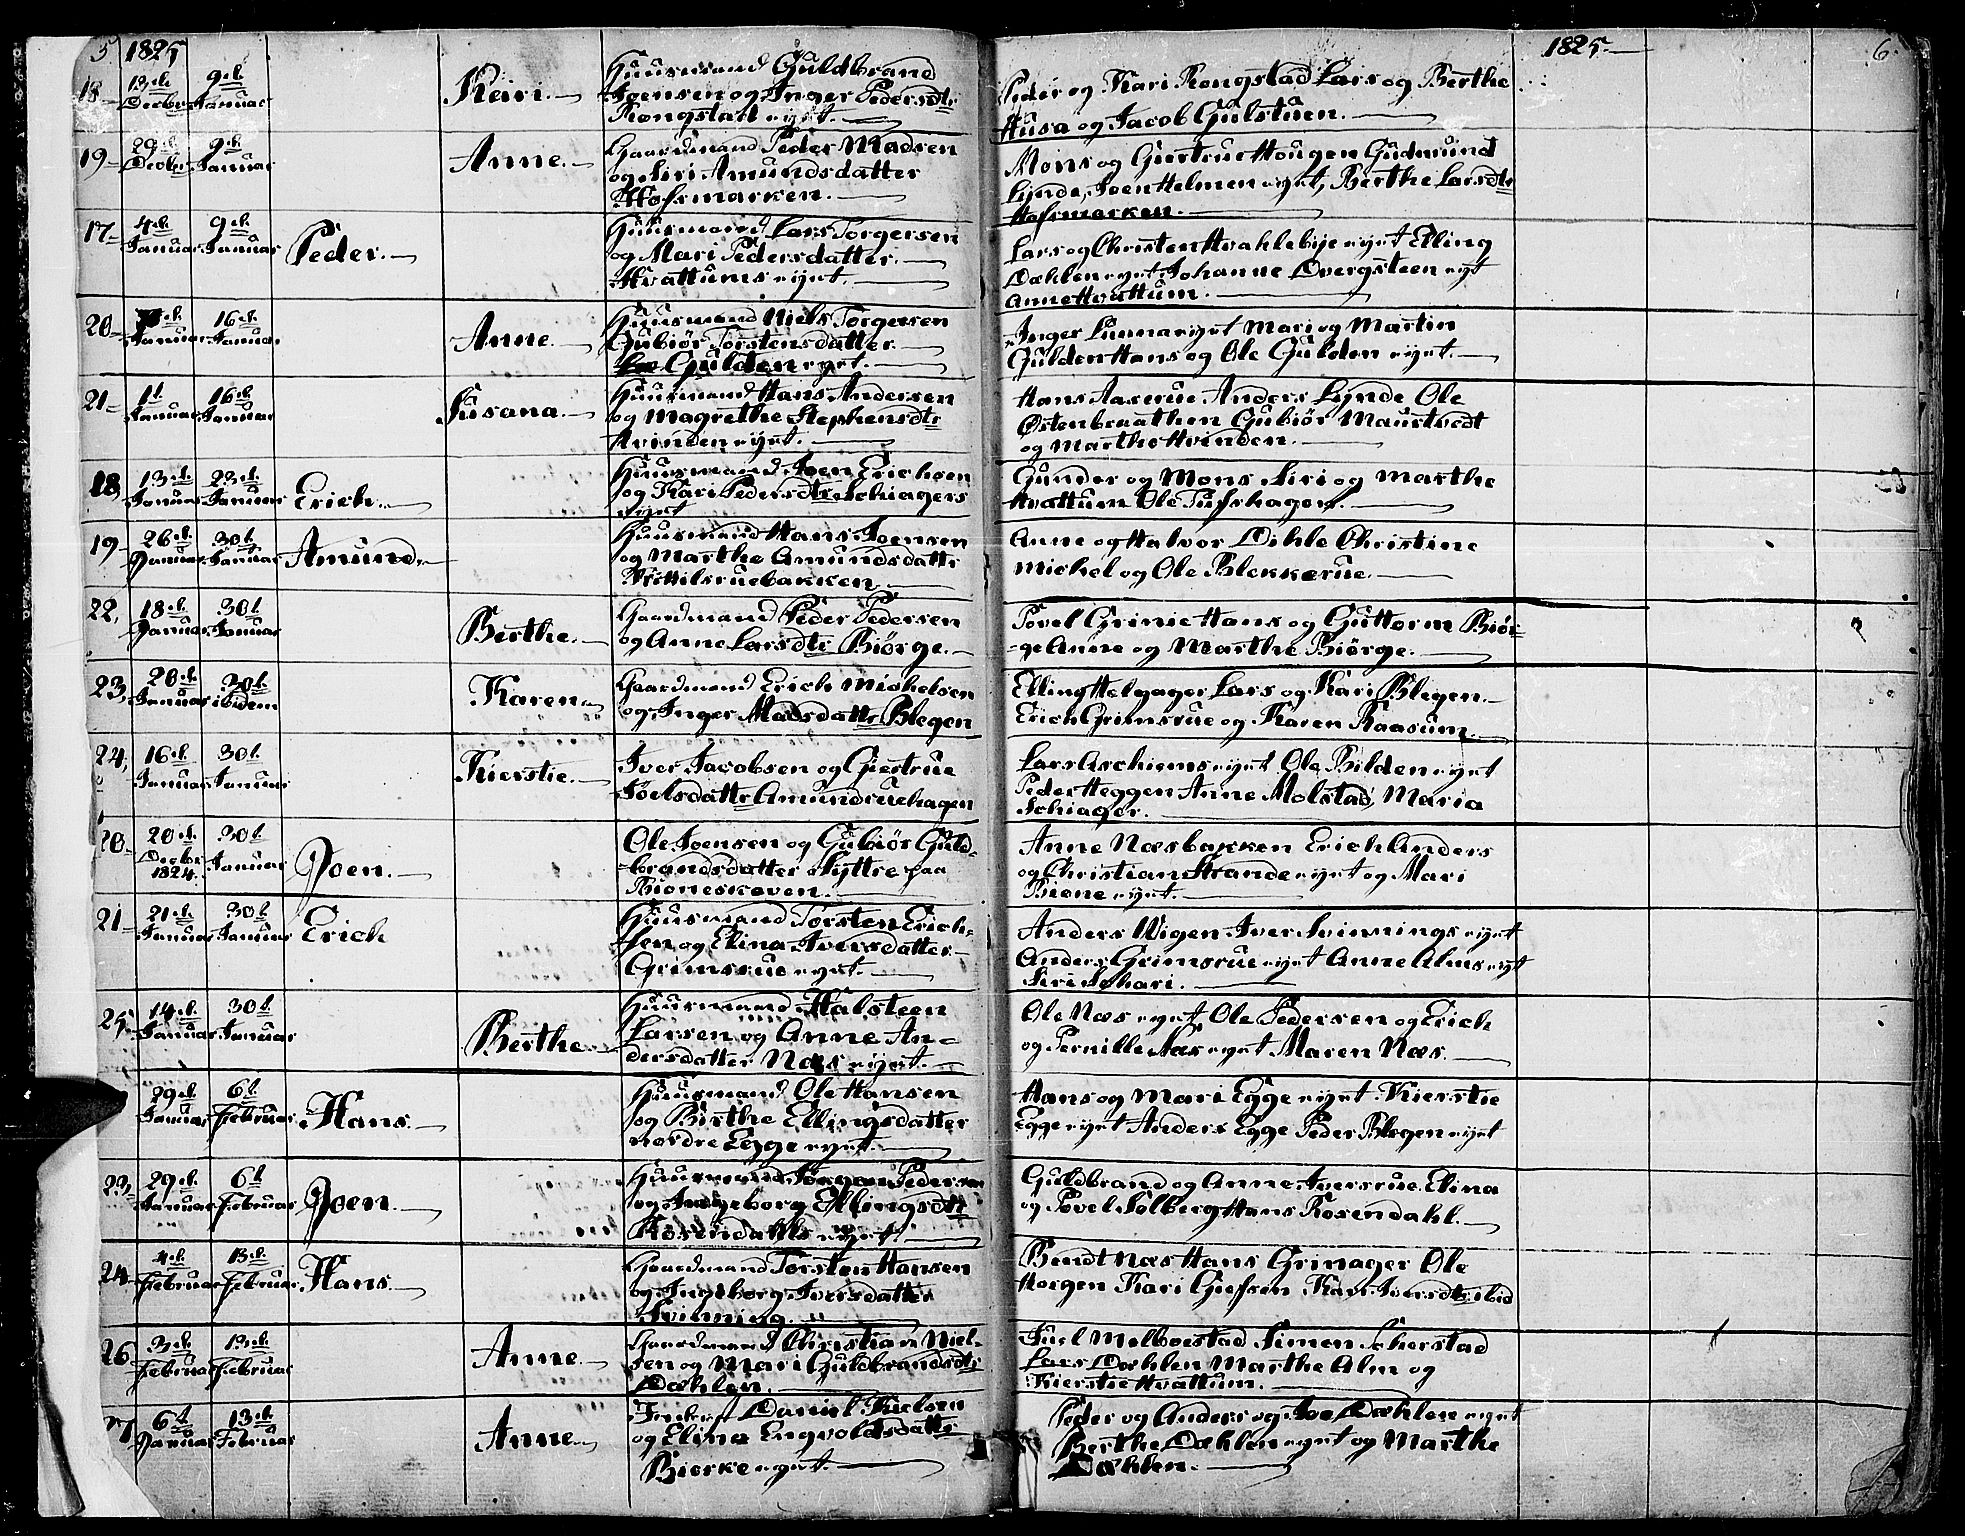 5 1825
18 13de Decbr 9de Januar Kari.
Huusmand Guldbrand
Joensen og Inger Pedersdtr
Rongstad eyet.
Peder og Kari Rongstad Lars og Berthe
Husa og Jacob Gulstuen.
19 29de Decbr 9de Januar Anne.
Gaardmand Peder Madsen
og Siri Amundsdatter
Hofsmarken.
Mons og Giertrue Hougen Gudmund
Lynde, Joen Helmen eyet, Berthe Larsdtr
Hofsmarken.
17 4de Januar 9de Januar Peder.
Huusmand Lars Torgersen
og Mari Pedersdatter.
Hvattums eyet.
Lars og Christen Hvahlebye eyet Elling
Dæhlen eyet Johanne Dvergsteen eyt
Anne Hvattum.
20 Januar 16de Januar Anne.
Huusmand Niels Torgersen
Gubiør Torstensdatter
Gulden eyet.
Inger Lunna eyet Mari og Martin
Gulden Hans og Ole Gulden eyet.
21 1t Januar 16de Januar Susana.
Huusmand Hans Andersen
og Magrethe Stephensdtr
Hvinden eyet.
Hans Aaserue Anders Lynde Ole
Østenbraathen Gubiør Maurtvedt
og Marthe Hvinden.
18 13de Januar 23de Januar Erich.
Huusmand Joen Erichsen
og Kari Pedersdtr Schiagers
eyet
Gunder og Mons Siri og Marthe
Hvattum Ole Pufshagen.
19 26de Januar 30t Januar Amund.
Huusmand Hans Joensen
og Marthe Amundsdattr
Kittilsruebakken
Anne og Halvor Dihle Christine
Michel og Ole Blekkerue.
22 18de Januar 30t Januar Berthe.
Gaardmand Peder Pedersen
og Anne Larsdtr Biørge.
Povel Grinie Hans og Guttorm Biør-
-ge Anne og Marthe Biørge.
23 20de Januar 30t ibidem Karen
Gaardmand Erich Michelsen
og Inger Madsdattr Blegen
Elling Helgager Lars og Kari Blegen.
Erich Grimsrue og Karen Raasum.
24 16de Januar 30t Januar Kierstie.
Iver Jacobsen og Giertrue
Joelsdattr Amundruehagen
Lars Aschiems eyet Ole Bilden eyet
Peder Heggen Anne Molstad, Maria
Schiager.
20 20de Decbr 1824 30t Januar Joen.
Ole Joensen og Gubiør Guld-
-brandsdatter Hyttre paa
Bioneskoven.
Anne Næsbakken Erich Anders
og Christian Strande eyet og Mari
Bione eyet.
21 21de Januar 30t Januar Erich
Huusmand Torsten Erich-
sen og Elina Iversdatter
Grimsrue eyet.
Anders Wigen Iver Svinnings eyet
Anders Grimsrue eyet Anne Alms eyt
Siri Schari.
25 14de Januar 30t Januar Berthe
Huusmand Halsteen
Larsen og Anne An-
dersdatter Næs eyet.
Ole Næs eyet Ole Pedersen og Erich
og Pernille Næs eyet Maren Næs.
29de Januar 6t Februar Hans.
Huusmand Ole Hansen
og Birthe Ellingsdatter
nordre Egge eyet.
Hans og Mari Egge eyet Kierstie
Egge eyet Anders Egge Peder Blegen eyet
23 29de Januar 6t Februar Joen.
Huusmand Jørgen Pedersen
og Ingeborg Ellingsdtr
Rosendahls eyet
Guldbrand og Anne Iversrue Elina
og Povel Solberg Hans Rosendahl.
24 4de Februar 13de Februar Hans.
Gaardmand Torsten Hansen
og Ingeborg Iversdatter
Svinning.
Bendt Næs Hans Grinager Ole
Horgen Kari Giefsen Kari Iversdtr ibid
26 3de Februar 13de Februar Anne.
Gaardmand Christian Niel-
sen og Mari Guldbrandsdtr
Dæhlen.
Juel Melboestad Simen Scherstad
Lars Dæhlen Marthe Alm og
Kierstie Hvattum.
27 6t Januar 13de Februar Anne
Daniel Nielsen
og Elina Engvoldsdattr
Bierke eyet.
Peder og Anders og Ive Dæhlen eyet
Berthe Dæhlen eyet og Marthe
Dæhlen.
1825.
6